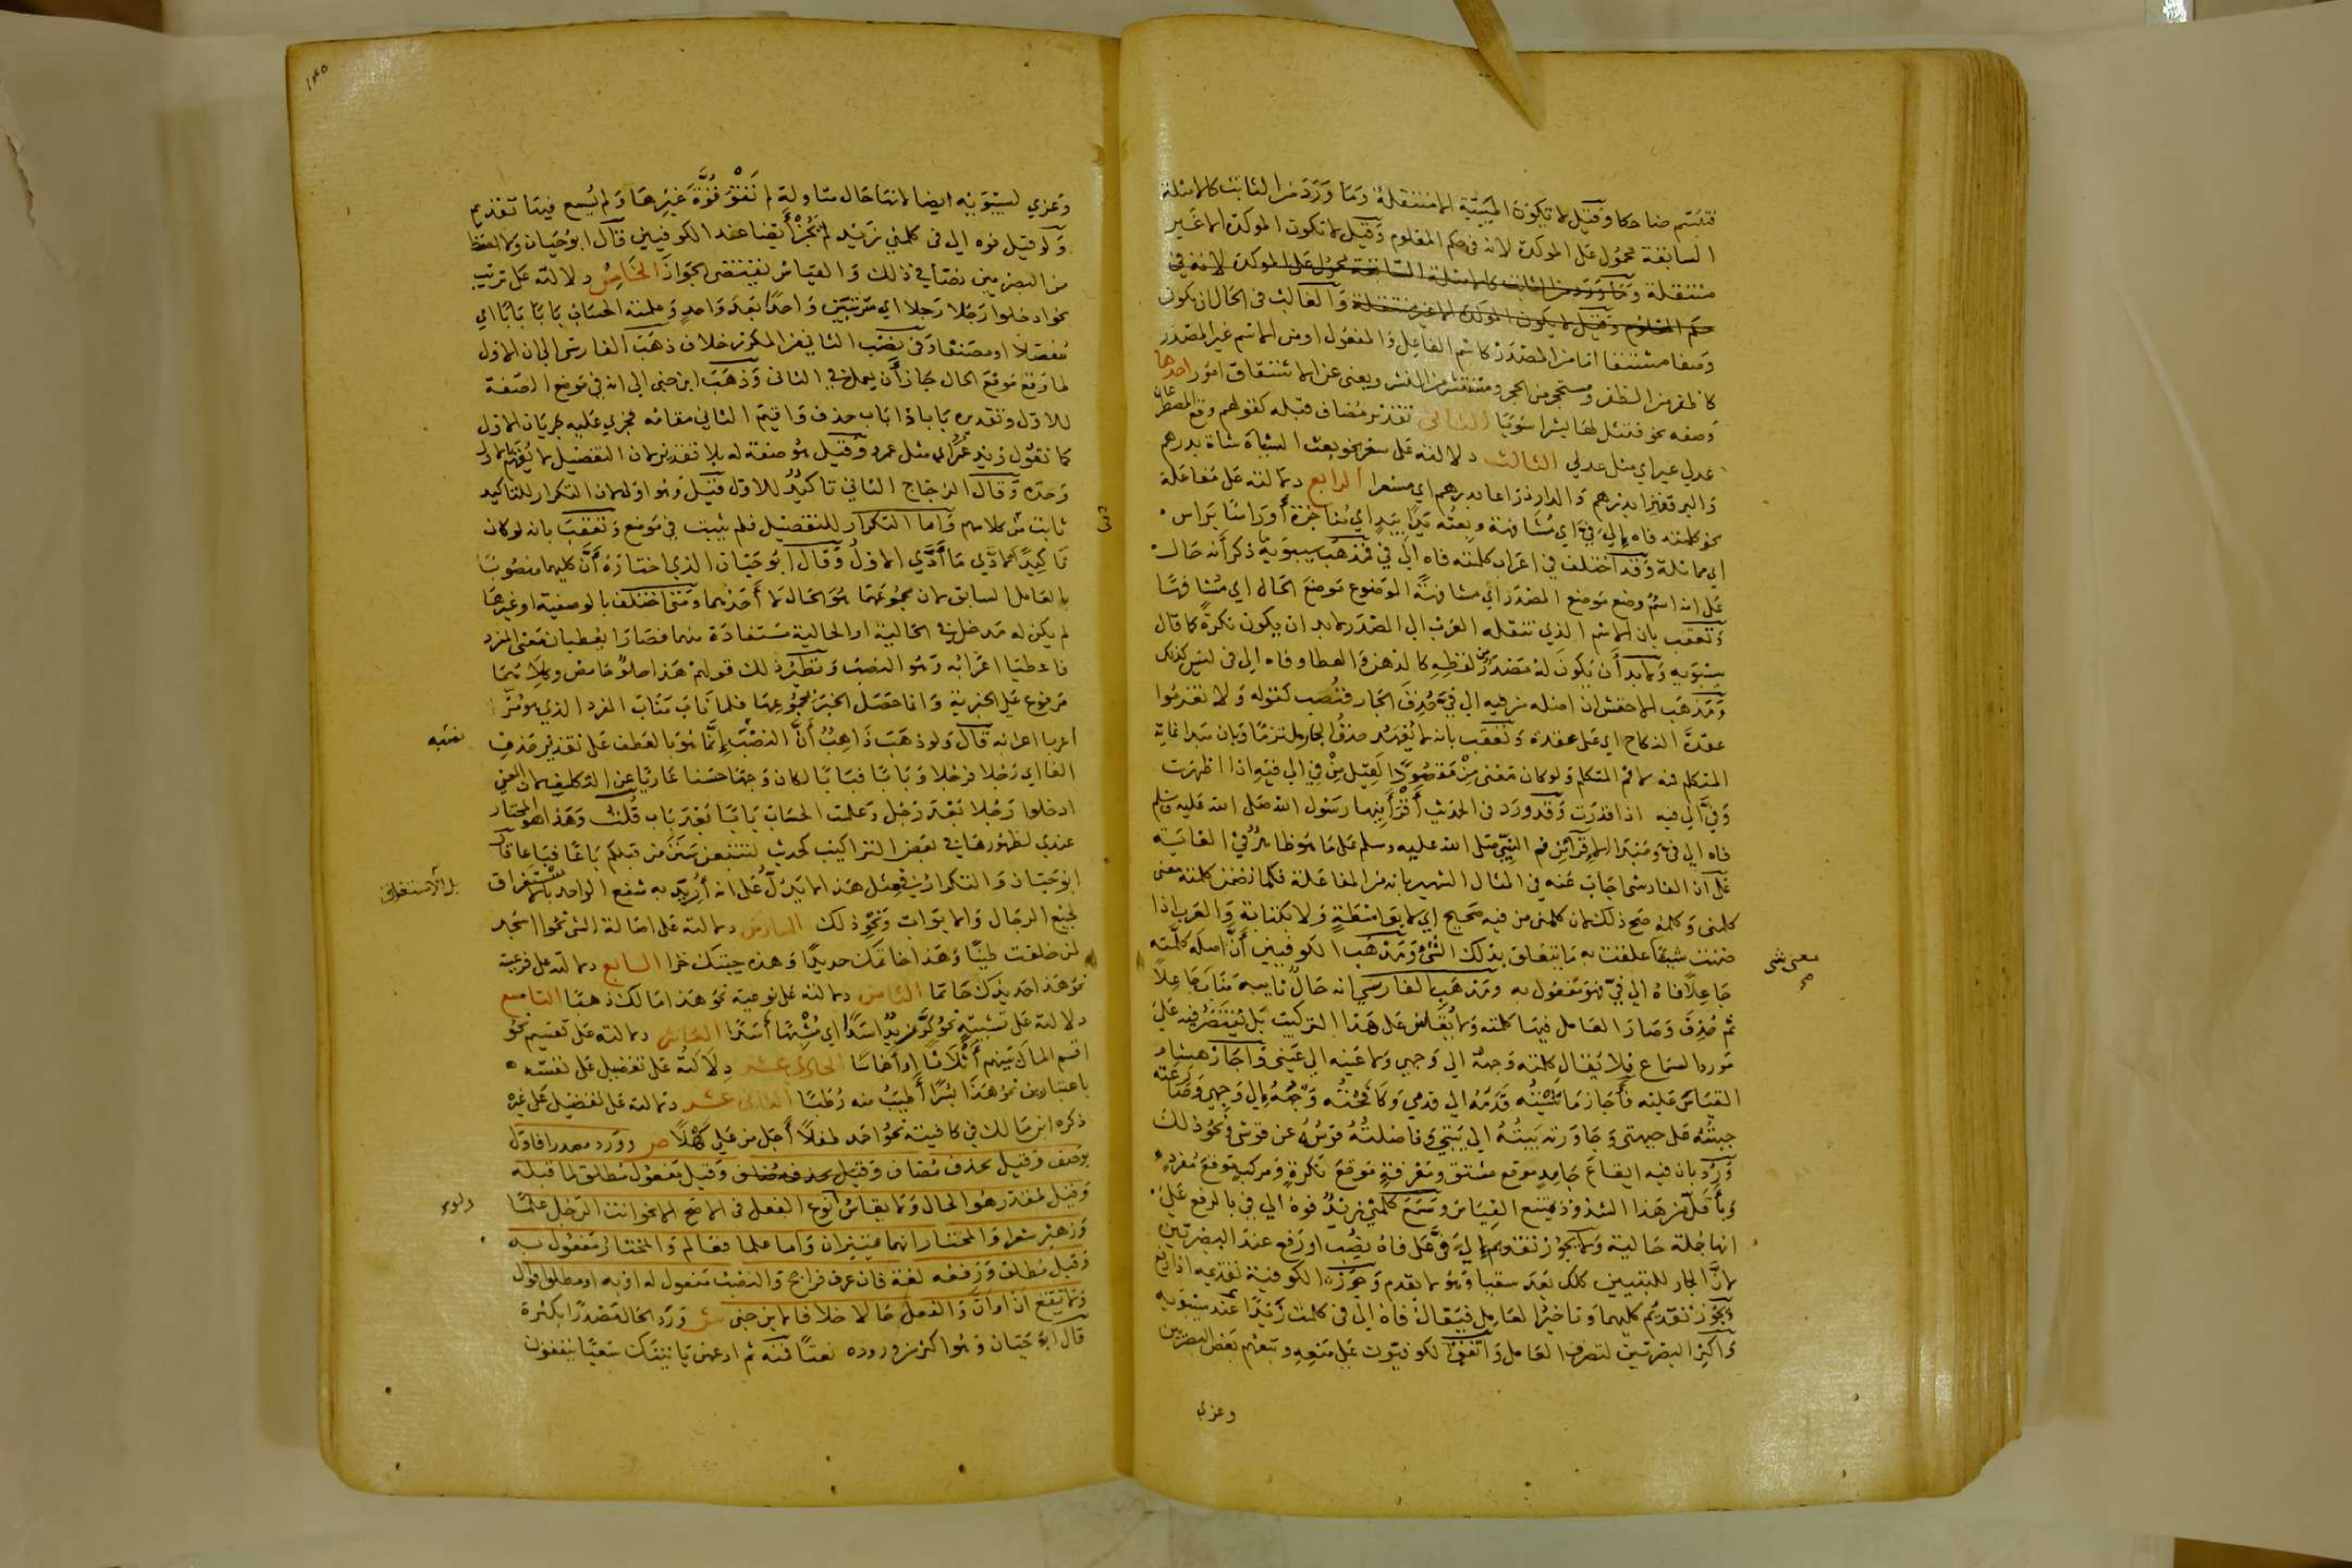 فتبسم ضاحكا وقيل لا تكون المبينة الا منتقلة وما ورد من الثابت كالامثلة
السابقة محمول على الموكدة لانه في حكم المعلوم وقيل لا تكون الموكدة الا غير
منتقلة وما ورد من الثابت كالامثلة السابقة محمول على الموكدة لانه في
حكم المعلوم وقيل لا يكون الموكدة الا غير منتقلة والغالب في الحال ان يكون
وصفا مشتقا اما من المصدر كاسم الفاعل والمفعول او من الاسم غير المصدر
كاظفر من الظفر ومستحجر من الحجر ويغني عن الاشتقاق امور احدها
وصفه نحو فتمثل لها بشرا سويا الثاني تقدير مضاف قبله كقولهم وقع المصطرعان
عدلي عير اي مثل عدلي الثالث دلالته على سعر نحو بعت الشاة شاة بدرهم
والبر قفيزا بدرهم والدار ذراعا بدرهم اي مسعرا الرابع دلالته على مفاعلة
نحو كلمته فاه الى في اي مشافهة وبعته يدا بيد اي مناجزة او راسا براس
اي مماثلة وقد اختلف في اعراب كلمته فاه الى في فمذهب سيبويه انه حال
على انه اسم وضع موضع المصدر اي مشافهة الموضوع موضع الحال اي مشافها
وتعقب بان الاسم الذي تنقله العرب الى المصدر لا بد ان يكون نكرة كما قال
سيبويه ولا بد ان يكون له مصدر من لفظه كالدهن والعطا وفاه الى في ليس كذلك
ومذهب الاخفش ان اصله من فيه الى في حذف الجار فنصب كقوله ولا تعزموا
عقدة النكاح اي على عقدة وتعقب بانه لا يعهد حذف الجار ملتزما وبان مبدا غاية
المتكلم فمه لا فم المتكلم ولو كان معنى من مقصودا لقيل من في الى فيه اذا اظهرت
وفي الى فيه اذا قدرت وقد ورد في الحديث اقرانيها رسول الله صلى الله عليه وسلم
فاه الى في ومبدا الاقرا من فم النبي صلى الله عليه وسلم على ما هو ظاهر في الغاية
على ان الفارسي اجاب عنه في المثال الشهير بانه من المفاعلة فكما تضمن كلمته معنى
كلمني وكلمته صح ذلك لان كلمني من فيه صحيح اي لا بواسطة ولا بكتابة والعرب اذا
ضمنت شيئا علقت به ما يتعلق بذلك الشئ ومذهب الكوفيين ان اصله كلمته
معنى شئ صح
جاعلا فاه الى في فهو مفعول به ومذهب الفارسي انه حال نايبة مناب جاعلا
ثم حذف وصار العامل فيها كلمته ولا يقاس على هذا التركيب بل يقتصر فيه على
مورد السماع فلا يقال كلمته وجهه الى وجهي ولا عينه الى عيني واجاز هشام
القياس عليه فاجاز ماشيته قدمه الى قدمي وكافحته وجهه الى وجهي
جبهته على جبهتي وجاورته بيته الى بيتي وناضلته قوسه عن قوسي ونحو ذلك
ورد بان فيه ايقاع جامد موقع مشتق ومعرفة موقع نكرة ومركب موقع مفرد
وباقل من هذا الشذوذ يمتنع القياس وسمع كلمني زيد فوه الى في بالرفع على
انها جملة حالية ولا يجوز تقديم الى في على فاه نصب او رفع عند البصريين
لان الجار للتبيين كلك بعد سقيا وهو لا يقدم وجوز الكوفية تقديمه اذا رفع
ويجوز تقديم كليهما وتاخير العامل فيقال فاه الى في كلمت زيدا عند سيبويه
واكثر البصريين لتصرف العامل واتفق الكوفيون على منعه وتبعهم بعض البصريين
وعزي
١٤٥
وعزي لسيبويه ايضا لانها حال متاولة لم تقو قوة غيرها ولم يسمع فيها تقديم
ولو قيل فوه الى في كلمني زيد لم يجز ايضا عند الكوفيين قال ابو حيان ولا احفظ
من البصريين نصا في ذلك والقياس يقتضي الجواز الخامس دلالته على ترتيب
نحو ادخلوا رجلا رجلا اي مرتبين واحدا بعد واحد وعلمته الحساب بابا بابا اي
مفصلا او مصنفا وفي نصب الثاني من المكرر خلاف ذهب الفارسي الى ان الاول
لما وقع موقع الحال جاز ان يعمل في الثاني وذهب ابن جني الى انه في موضع الصفة
للاول وتقديره بابا ذا باب حذف واقيم الثاني مقامه فجري عليه جريان الاول
كما تقول زيد عمرا اي مثل عمرو وقيل هو صفة له بلا تقدير لان التفصيل لا يفهم بالاول
وحده وقال الزجاج الثاني تاكيد للاول قيل وهو اولى لان التكرار للتاكيد
ثابت من كلامهم واما التكرار للتفصيل فلم يثبت في موضع وتعقب بانه لو كان
تاكيدا لادي ما ادي الاول وقال ابو حيان الذي اختاره ان كليهما منصوب
بالعامل السابق لان مجموعهما هو الحال لا احدهما ومتى اختلف بالوصفية او غيرها
لم يكن له مدخل في الحالية اذ الحالية مستفادة منهما فصارا يعطيان معنى المفرد
فاعطيا اعرابه وهو النصب ونظير ذلك قولهم هذا حلو حامض وكلاهما
مرفوع على الخبرية وانما حصل الخبر بمجموعهما فلما ناب مناب المفرد الذي هو مز
اعربا اعرابه قال ولو ذهب ذاهب ان النصب انما هو بالعطف على تقدير حذف
الفا اي رجلا فرجلا وبابا فبابا لكان وجها حسنا عاريا عن التكلف لان المعنى
ادخلوا رجلا بعد رجل وعلمته الحساب بابا بعد باب قلت وهذا هو المختار
عندي لظهورها في بعض التراكيب كحديث لتتبعن سنن من قبلكم باعا فباعا قال
ابو حيان والتكرار في مثل هذا لا يدل على انه اريد به شفع الواحد بل الاستغراق
لجميع الرجال والابواب ونحو ذلك السادس دلالته على اصالة الشي نحو ااسجد
لمن خلقت طينا وهذا خاتمك حديدا وهذه جبتك خزا السابع دلالته على فرعية
نحو هذا حديدك خاتما الثامن دلالته على نوعية نحو هذا مالك ذهبا التاسع
دلالته على تشبيه نحو كر زيد اسدا اي مشبها اسدا العاشر دلالته على تقسيم نحو
اقسم المال بينهم اثلاثا او اخماسا الحادي عشر دلالته على تفضيل على نفسه
باعتبارين نحو هذا بسرا اطيب منه رطبا الثاني عشر دلالته على تفضيل على غيره
ذكره ابن مالك في كافيته نحو احد طفلا اجل من علي كهلا ص وورد مصدرا فاول
بوصف وقيل بحذف مضاف وقيل بحذفه وقيل مفعول مطلق لما قبله
وقيل لمقدر هو الحال ولا يقاس نوع الفعل في الاصح الا نحو انت الرجل علما
وزهير شعرا والمختار انهما تمييزان واما علما فعالم والمختار مفعول به
وقيل مطلق ورفعه لغة فان عرف فراجح والنصب مفعول له او به او مطلق اقوال
ولا يقع ان او ان والفعل حالا خلافا لابن جني ش ورد الحال مصدرا بكثرة
قال ابو حيان وهو اكثر من وروده نعتا فمنه ثم ادعهن ياتينك سعيا ينفقون
بل الاستغراق